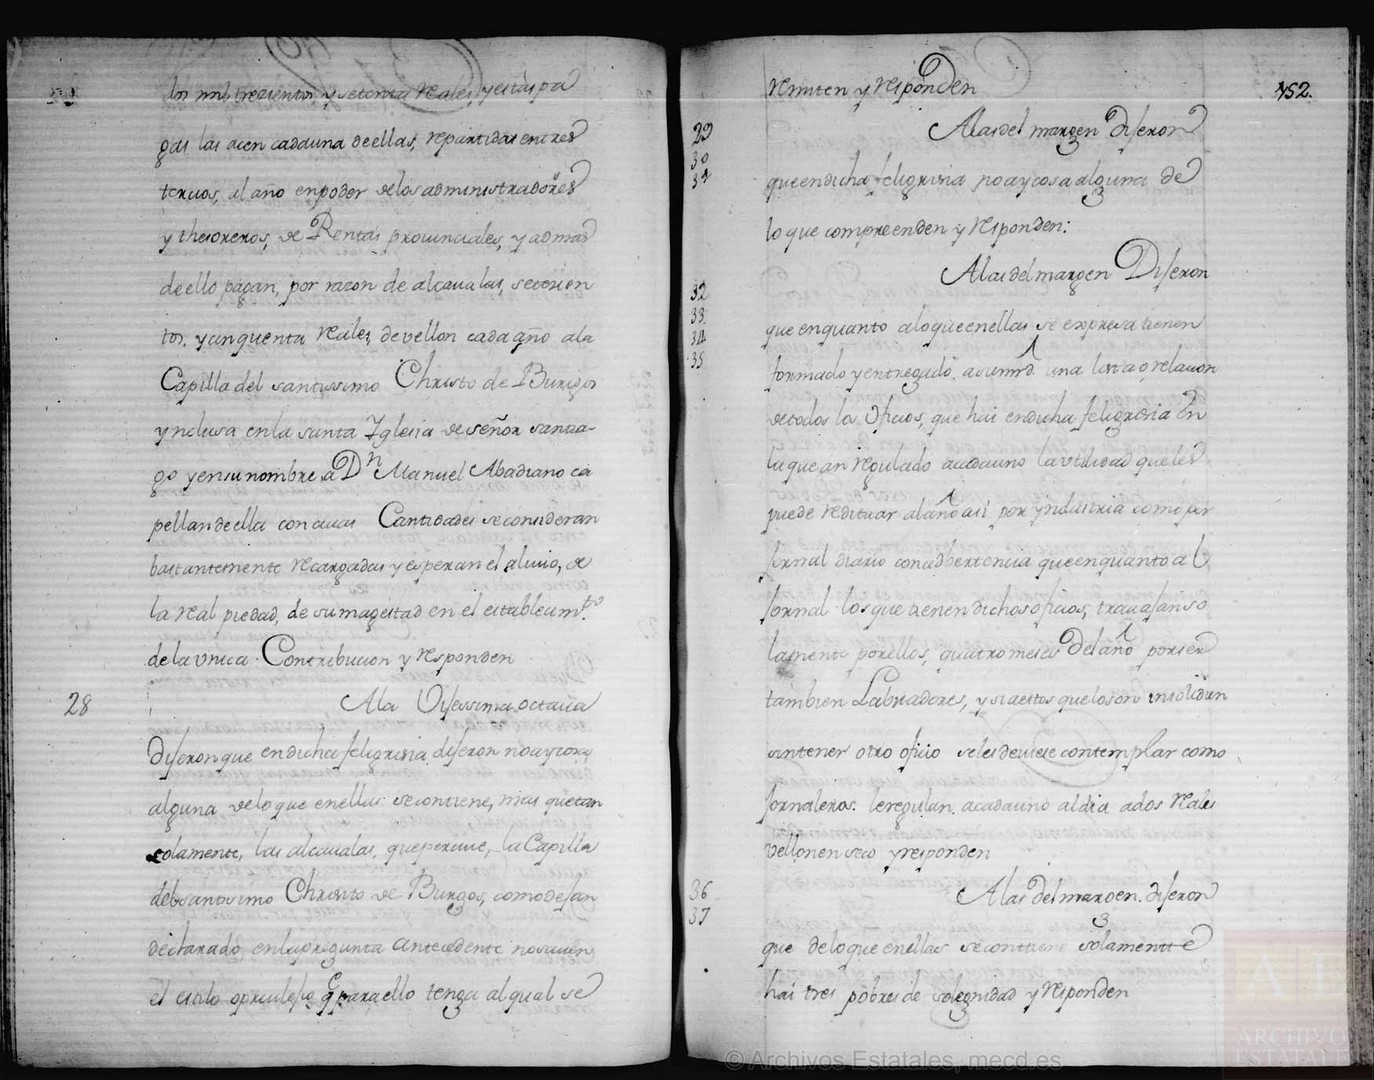 dos mil trezientos, y setenta reales, y estas pa
gas las acen cada una de ellas, repartidas en tres
tercios, al año en poder de los administradores
y thesoreros, de Rentas provinciales, y ademas
de ello pagan, por razon de alcavalas, setecien
tos, y cinquenta reales, de vellon cada año a la
Capilla del santissimo Christo de Burgos
ynclusa en la santa Yglesia de señor santia-
go y en su nombre, a Dn Manuel Abadiano ca
pellan de ella con cuias Cantidades se consideran
bastantemente recargadas y esperan el alivio, de
la real piedad, de su magestad en el establecimto
de la Unica Contribucion y responden
28
A la Vijessima octava
dijeron que en dicha feligrisia, dijeron no ay cosa
alguna de lo que en ellas se contiene, mas que tan
solamente, las alcavalas, que percive, la Capilla
del santisimo Christo de Burgos, como dejan
declarado, en la pregunta antecedente no saven
el estilo o privilejio que para ello tenga al qual se
remiten y responden
452.
29
30
31
A las del margen Dijeron
que en dicha feligrisia no ay cosa alguna de
lo que compreenden y responden:
32
33
34
35
A las del margen Dijeron
que en quanto a lo que en ellas se expresa tienen
formado y entregado a su md. una lista o relacion
de todos los oficios, que hai en dicha feligrisia En
la que an regulado a cada uno la utilidad que les
puede redituar al año asi por yndustria como por
jornal diario con adbertencia que en quanto al
jornal los que tienen dichos oficios, travajan so
lamente por ellos, quatro meses Del año por ser
tambien Labradores, y si a estos que lo son in solidun
sin tener otro oficio se les deviese contemplar como
jornaleros. le regulan, a cada uno al dia a dos reales
vellon en seco y responden
36
37
A las del margen. dijeron
que de lo que en ellas se contiene solamente
hai tres pobres de solegnidad y responden
© Archivos Estatales, mecd.es
AE
ARCHIVOS
ESTATALE